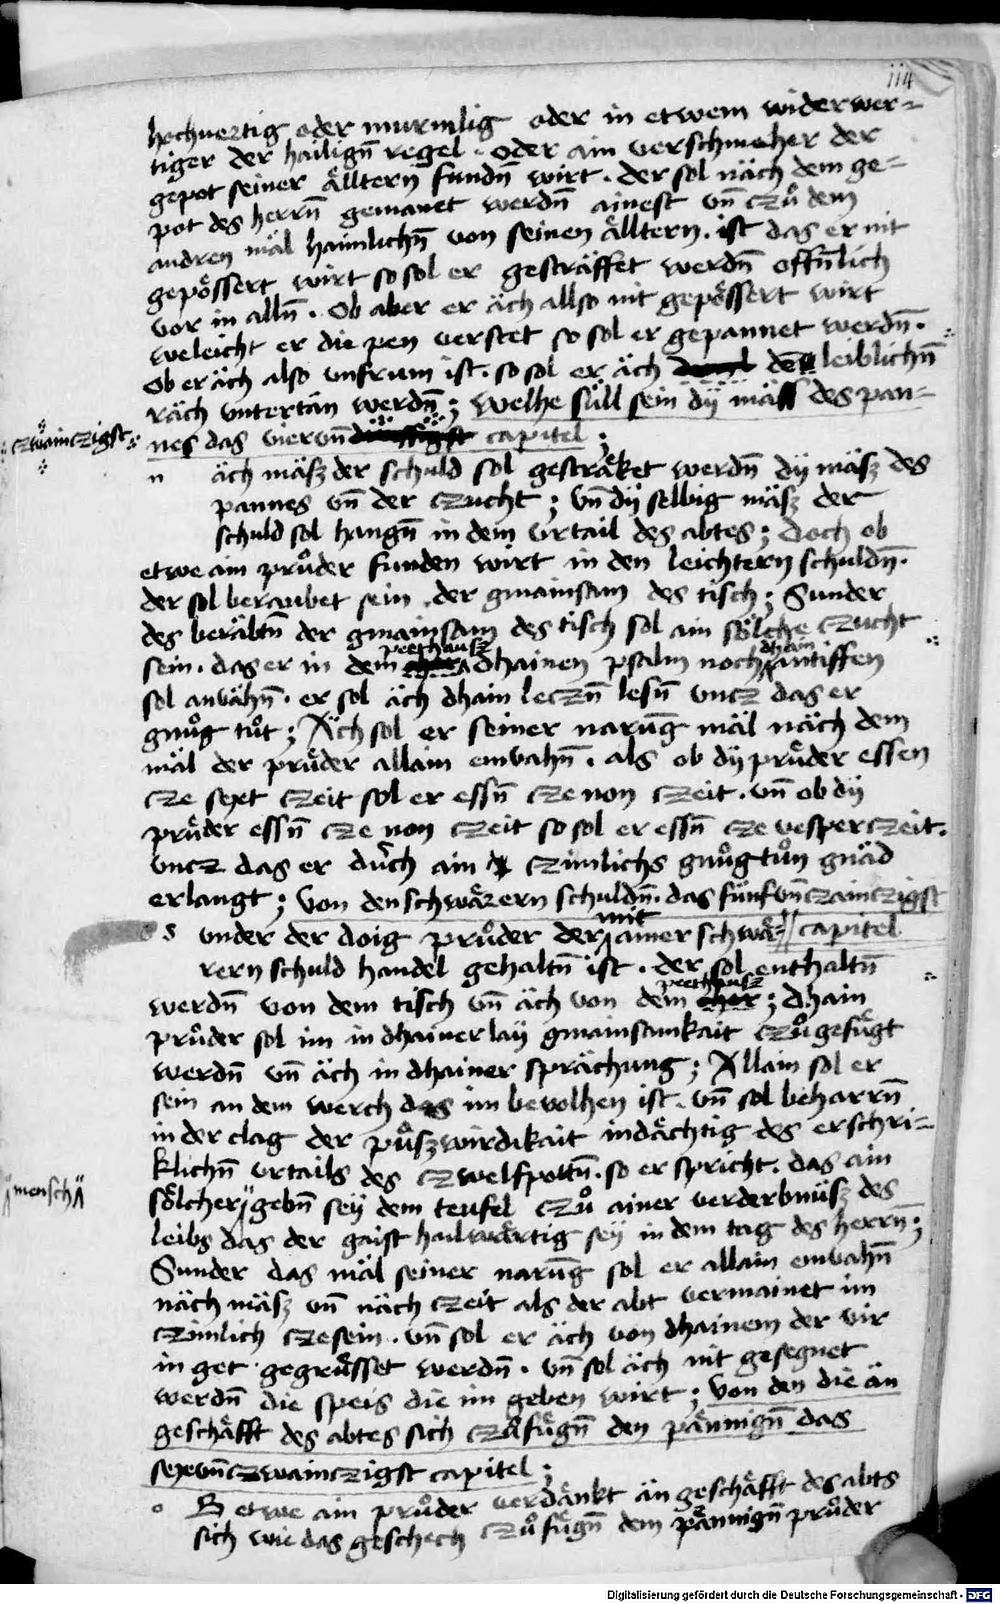 114
hochuertig oder murmlig oder in etwem widerwer=
tiger der hailign̄ regel · oder ain verschmaher der
gepot seiner ålltern fundn̄ wirt · der sol näch dem ge=
pot des herrn̄ gemanet werdn̄ ainest vn̄ czů dem
andren mäl haimlichn̄ von seinen ålltern · ist das er nit
gepössert wirt so sol er gesträffet werdn̄ offn̄lich
vor in alln̄ · Ob aber er äch allso nit gepössert wirt
veleicht er die pen verstet so sol er gepannet werdn̄ ·
Ob er äch also vnfrum ist · so sol er äch den leiblichn̄
räch vntertän werdn̄ ; Welhe süll sein dÿ mäss des pan=
czwainczigst
nes das viervn̄ capitel ;
n äch mäsz der schuld sol gestråket werdn̄ dÿ mäsz des
pannes vn̄ der czucht ; vn̄ dÿ selbig mäsz der
schuld sol hangn̄ in dem vrtail des abtes ; Doch ob
etwe ain průder funden wirt in den leichtern schuldn̄ ·
der sol beraubet sein der gmainsam des tisch ; Sunder
des beräbtn̄ der gmainsam des tisch sol ain sölche czucht
sein · das er in dem pethausz dhainen psalm noch dhain antiffen
sol anvähn̄ · er sol äch dhain leczn̄ lesn̄ vncz das er
gnůg tůt ; Äch sol er seiner narūg mäl näch dem
mäl der průder allain envahn̄ · als ob dÿ průder essen
cze sext czeit sol er essn̄ cze non czeit · vn̄ ob dÿ
průder essn̄ cze non czeit so sol er essn̄ cze vesperczeit ·
vncz das er durch ain czimlichs gnůgtůn gnäd
erlangt ; Von den schwårern schuldn̄ · das fünfvn̄czwainczigst
D s vnder der doig průder der mit ainer schwå= // capitel
rern schuld handel gehaltn̄ ist · der sol enthaltn̄
werdn̄ von dem tisch vn̄ äch von dem pethausz ; dhain
průder sol im in dhainerlaÿ gmainsamkait czůgefůgt
werdn̄ vn̄ äch in dhainer sprächung ; Allain sol er
sein an dem werch das im bevolhen ist · vn̄ sol beharrn̄
in der clag der půszwirdikait indächtig des erschri=
klichn̄ vrtails des czwelfpottn̄ · so er spricht · das ain
mensch
sölcher gebn̄ seÿ dem teufel czů ainer verderbnüsz des
leibs das der gaist hailwårtig seÿ in dem tag des herrn̄ ;
Sunder das mäl seiner narūg sol er allain envahn̄
näch mäsz vn̄ näch czeit als der abt vermainet im
czimlich czesein · vn̄ sol er äch von dhainem der vir
in get gegrůsset werdn̄ · vn̄ sol äch nit gesegnet
werdn̄ die speis die im geben wirt ; Von den die än
geschåfft des abtes sich czůfůgn̄ den pånnign̄ das
sexvn̄czwainczigst capitel ;
o B etwe ain průder verdånkt än geschåfft des abts
sich wie das geschech czůfůgn̄ dem pånnign̄ průder
Digitalisierung gefördert durch die Deutsche Forschungsgemeinschaft - DFG